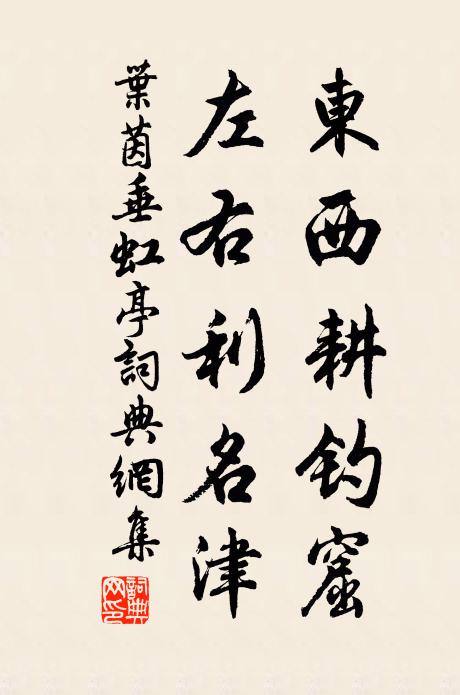 東西耕钓窟
左右利名津
葉茵垂虹亭詞典網集
詞典网印